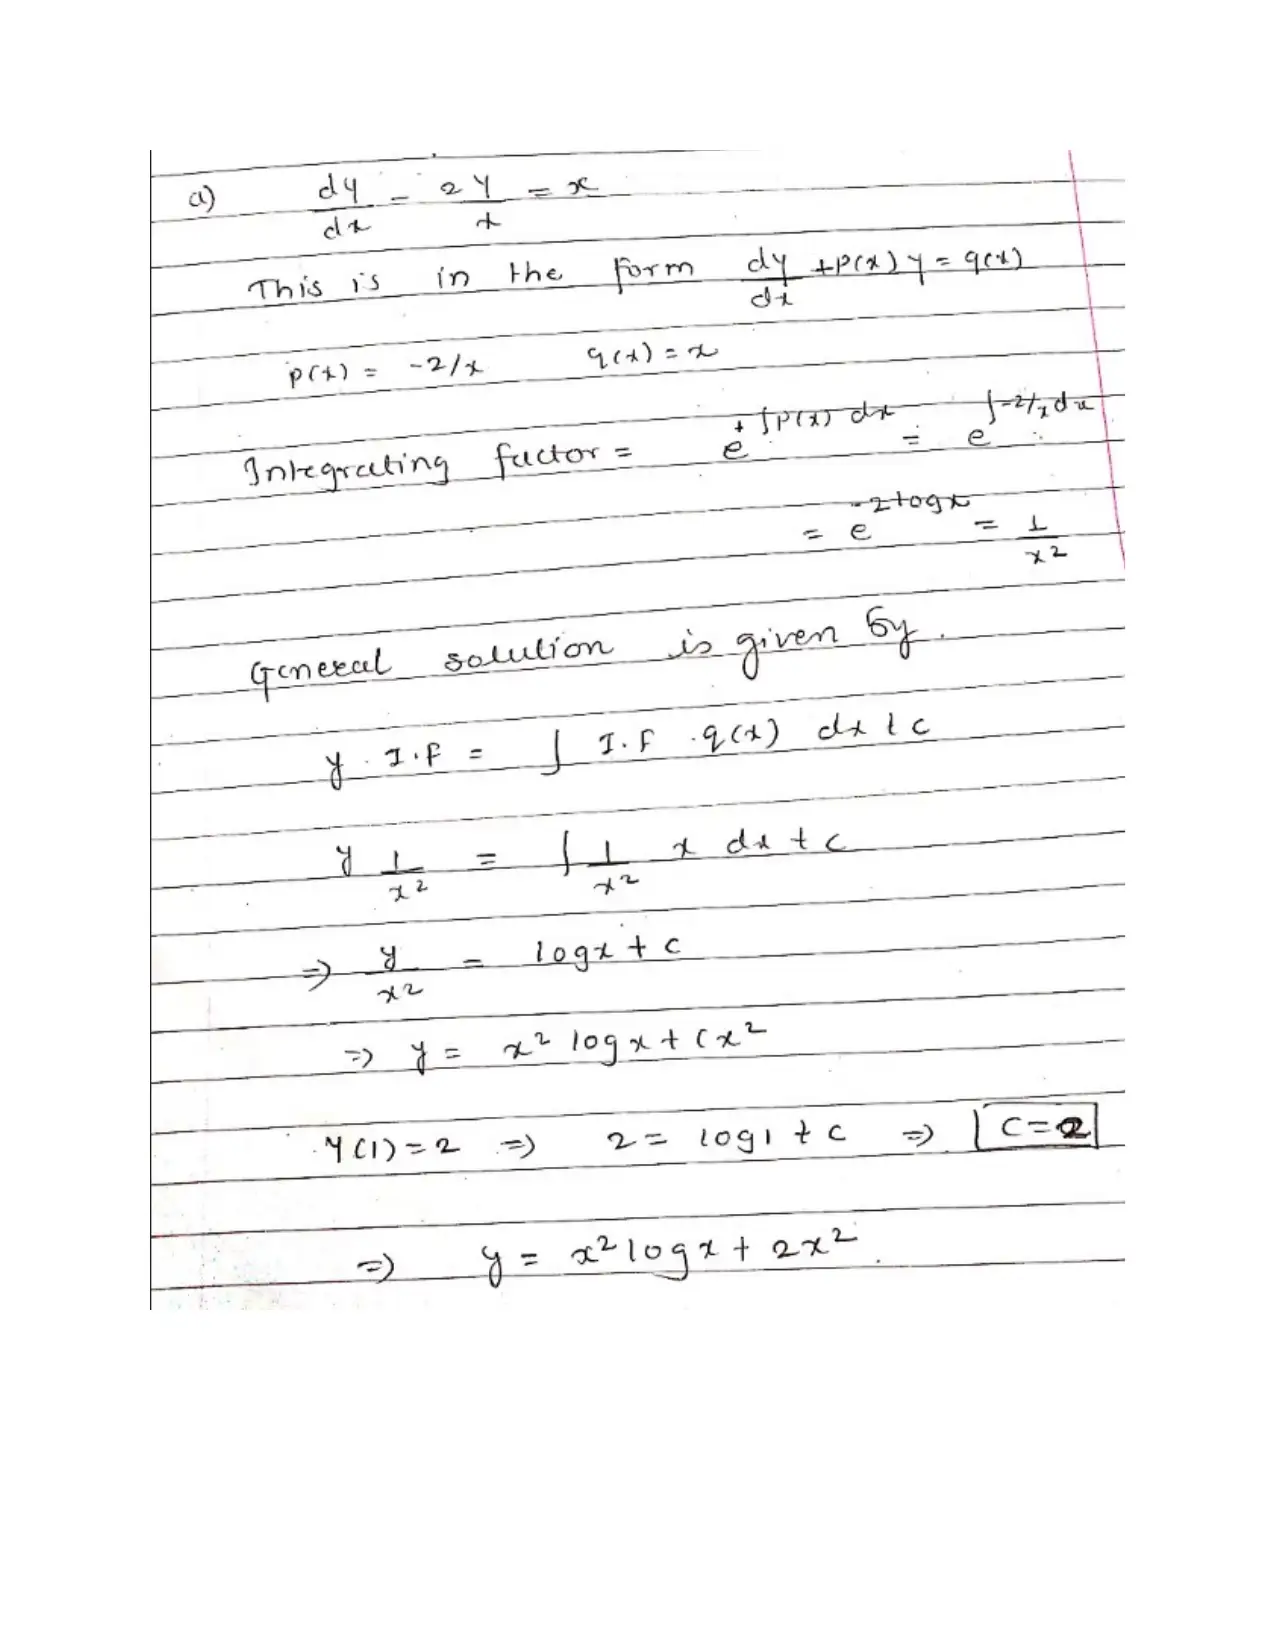 a) dy/dx - 2y/x = x
This is in the form dy/dx + p(x) y = q(x)
p(x) = -2/x q(x) = x
Integrating factor = e^{+∫p(x) dx} = e^{∫-2/x dx}
= e^{-2logx} = 1/x²
General solution is given by.
y . I.F = ∫ I.F . q(x) dx + c
y 1/x² = ∫ 1/x² x dx + c
=> y/x² = logx + c
=> y = x² logx + cx²
y(1) = 2 => 2 = log1 + c => C = 2
=> y = x² logx + 2x².